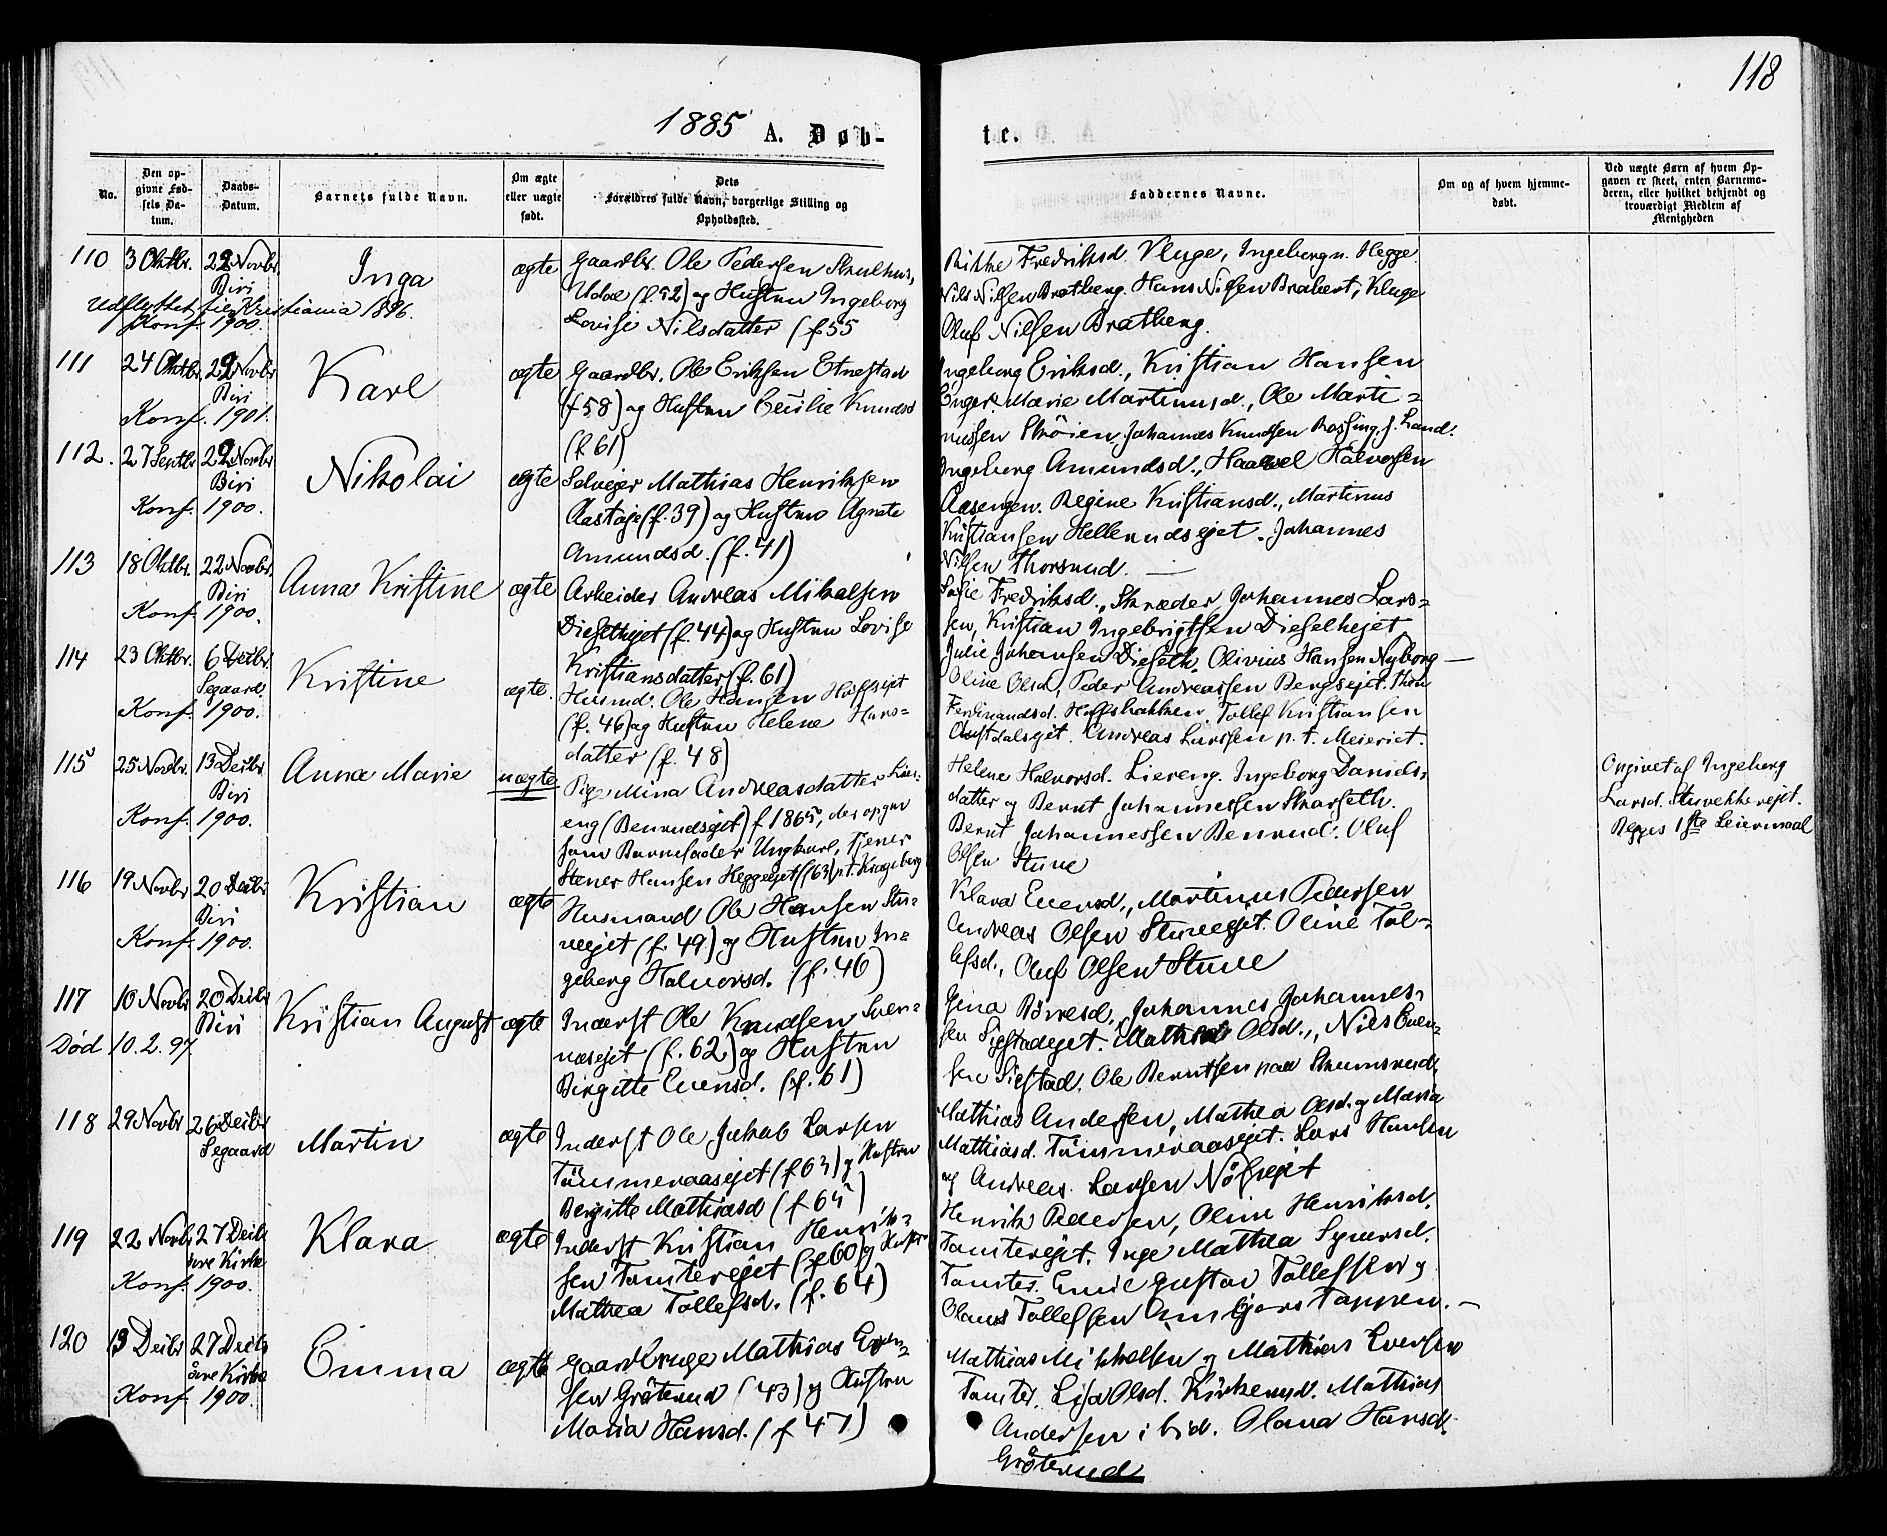 118
1885 A. Døb-
te.
No.
Den op-
givne Fød-
sels Da-
tum.
Daabs-
Datum.
Barnets fulde Navn.
Om ægte
eller uægte
født.
Dets
Forældres fulde Navn, borgerlige Stilling og
Opholdssted.
Faddernes Navne.
Om og af hvem hjemme-
døbt.
Ved uægte Børn af hvem Op-
gaven er skeet, enten Barnemo-
deren, eller hvilket bekjendt og
troværdigt Medlem af
Menigheden
110 3 Oktbr. 22 Novbr. Biri Inga ægte
Udflyttet til Kristiania 1896.
Konf. 1900.
Gaardbr. Ole Pedersen Skulhus,
(f. 52) og Hustru Ingeborg
Lovise Nilsdatter (f 55
Rikke Fredriksd. Kluge, Ingeborg n. Hegge.
Nils Nilsen Bratberg. Hans Nilsen Kluge
Oluf Nilsen Bratberg.
111 24 Oktbr. 22 Novbr. Biri Karl ægte
Konf. 1901.
Gaardbr. Ole Eriksen Etnestad
(f 58) og Hustru Cecilie Knudsd
(f. 61)
Ingeborg Eriksd., Kristian Hansen
Enger. Marie Martinusd., Ole Marti-
nussen Skrøien, Johannes Knudsen Land.
112. 27 Septbr 22 Novbr Biri Nikolai ægte
Konf. 1900.
Selveier Mathias Henriksen
(f. 39) og Hustru Agnete
Amundsd. (f. 41)
Ingeborg Amundsd., Haavel Halvorsen
Aasengen. Regine Kristiansd., Martinus
Kristiansen Hellerudsejet. Johannes
Nilsen Thorsrud.
113 18 Oktbr. 22 Novbr. Biri Anna Kristine ægte
Konf. 1900.
Arbeider Andreas Mikalsen
Diesethejet (f. 44) og Hustru Lovise
Kristiansdatter (f. 61)
Sofie Fredriksd., Skræder Johannes Lars-
sen, Kristian Ingebrigtsen Diesethejet
Julie Johansen Dieseth, Olivius Hansen Nyborg
114 23 Oktbr. 6 Decbr. Segaard. Kristine ægte.
Konf. 1900.
Husmd. Ole Hansen
(f. 46) og Hustru Helene Hans-
datter (f. 48)
Oline Olsd, Peder Andreassen Bergsejet.
Ferdinandsd. Tollef Kristiansen
Andreas Larssen p. t. Meieriet.
115 25 Novbr. 13 Decbr. Biri Anna Marie uægte
Konf. 1900.
Pige Mina Andreasdatter Lier-
eng (Benrudsejet) f 1865, der opgav
som Barnefader Ungkarl, Tjener
Stener Hansen Heggeejet (f 63) p. t. Krageberg
Helene Halvorsd. Liereng. Ingeborg Daniels-
datter og Bernt Johannessen Skarseth.
Bernt Johannessen Benrud. Oluf
Olsen Stuve
Opgivet af Ingeborg
Larsd. Stuvekkerejet.
Begges 1ste Leiermaal
116 19 Novbr 20 Decbr Biri Kristian ægte
Konf. 1900.
Husmand Ole Hansen Stu-
veejet (f. 49) og Hustru In-
geborg Halvorsd. (f. 46)
Klara Evensd., Martinus Pedersen
Andreas Olsen Stuveejet. Oline Tol-
lefsd., Oluf Olsen Stuve
117 10 Novbr 20 Decbr Biri Kristian August ægte
Død 10. 2. 97
Inderst Ole Knudsen Sven-
næsejet (f. 62) og Hustru
Birgitte Evensd. (f. 61)
Gina Børresd., Johannes Johannes-
sen Sigstadejet. Mathea Olsd., Nils Even-
sen Sigstad. Ole Berntsen paa Skumsrud.
118 29 Novbr 26 Decbr Segaard Martin ægte
Inderst Ole Jakob Larsen
Tømmeraasejet (f 63) og Hustru
Birgitte Mathiasd (f 65)
Mathias Andersen, Mathea Olsd. og Maria
Mathiasd. Tømmeraasejet. Lars Hansen
og Andreas Larsen Nøssejet
119 22 Novbr 27 Decbr øvre Kirke Klara ægte
Konf. 1900.
Inderst Kristian Henrik-
sen Tomterejet (f 60) og Hustr
Mathea Tollefsd. (f. 64)
Henrik Pedersen, Oline Henriksd.
Tomterejet. Inge Mathea Syversd.
Tomter. Emil Gustav Tollefsen og
Olaus Tollefsen Tappen.
120 13 Decbr 27 Decbr øvre Kirke Emma ægte
Konf. 1900.
Gaardbruger Mathias Even-
sen Grøterud (43) og Hustru
Maria Hansd. (f 47)
Mathias Mikkelsen og Mathias Evensen
Tomter. Lisa Olsd. Kirkerud. Mathias
Andersen ibid. Olava Hansd.
Grøterud